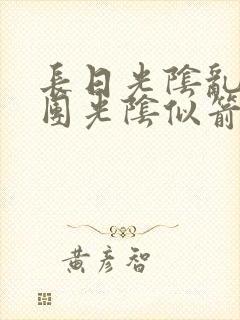 長日光陰亂
園光陰似箭
黃彥智